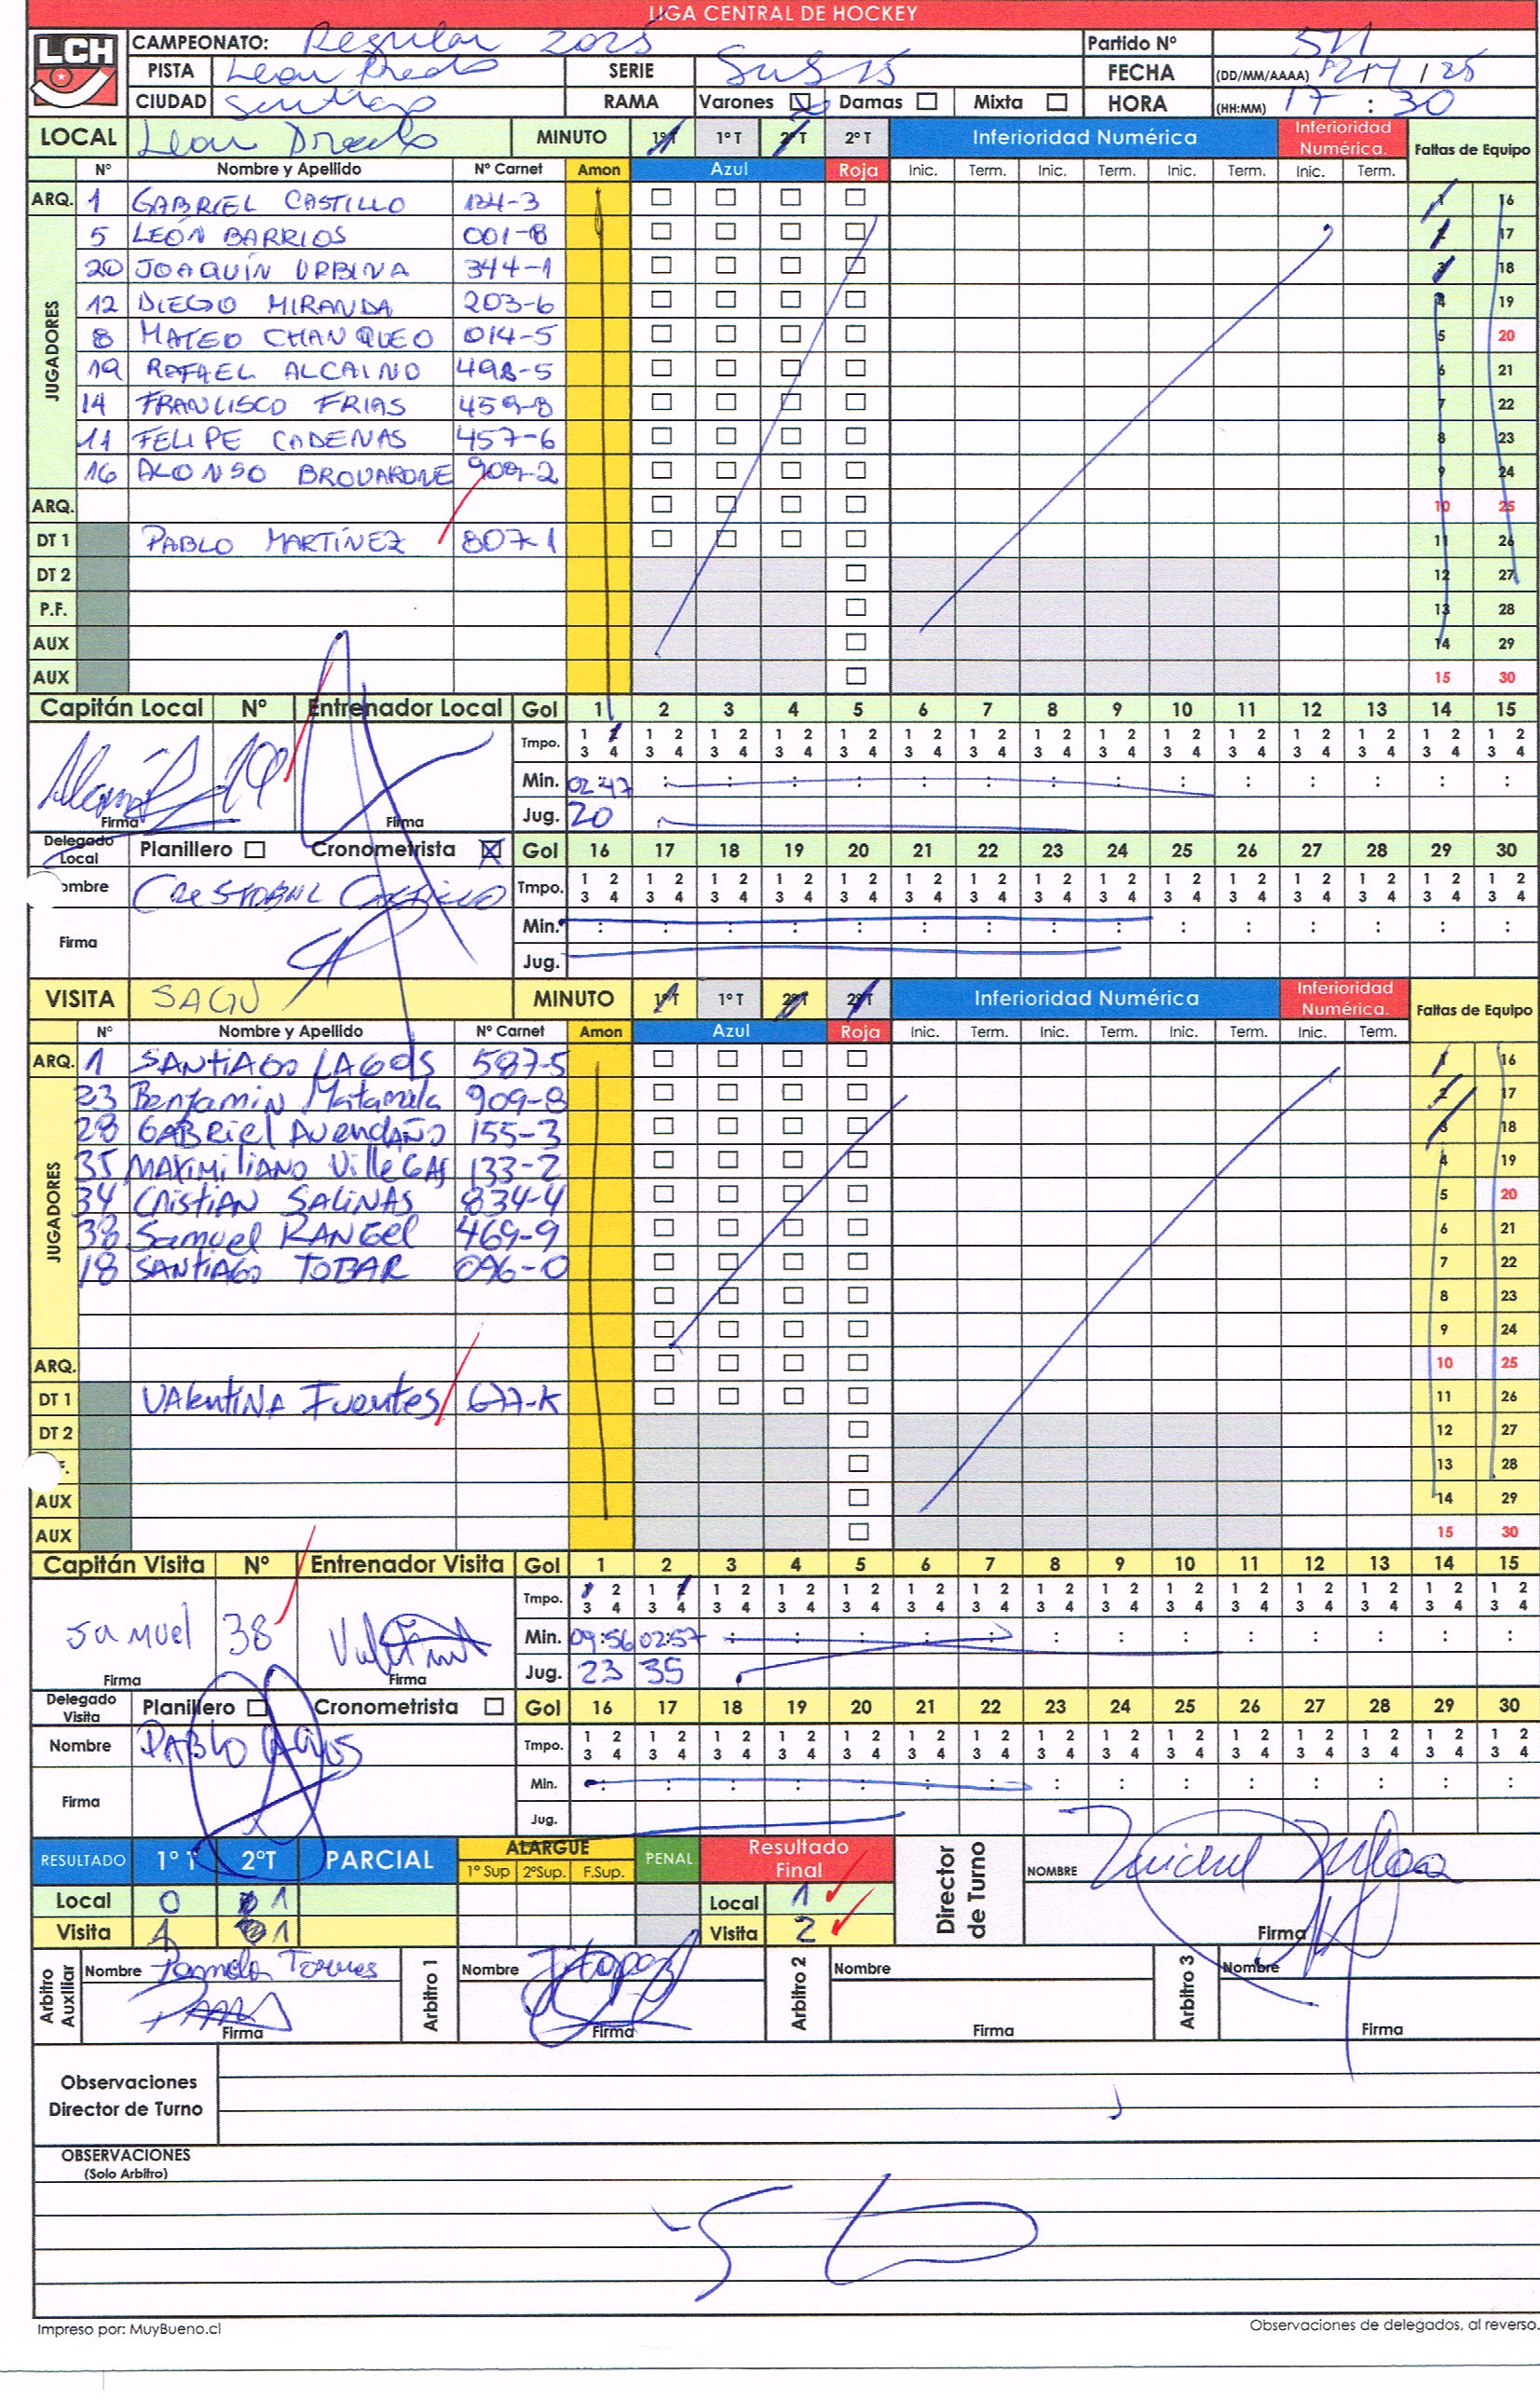 LIGA CENTRAL DE HOCKEY
LCH
CAMPEONATO: Regular 2025 Partido Nº
PISTA Leon Prado SERIE SUB 15 FECHA (DD/MM/AAAA) / / 25
CIUDAD Santiago RAMA Varones Damas Mixta HORA (HH:MM) 17 : 30
LOCAL Leon Prado MINUTO 1ºT 1ºT 2ºT 2ºT Inferioridad Numérica Inferioridad Numérica. Faltas de Equipo
Nº Nombre y Apellido Nº Carnet Amon Azul Roja Inic. Term. Inic. Term. Inic. Term. Inic. Term.
ARQ. 1 GABRIEL CASTILLO 124-3 1 16
JUGADORES
5 LEÓN BARRIOS 001-8 2 17
20 JOAQUÍN URBINA 344-1 3 18
12 DIEGO MIRANDA 203-6 4 19
8 MATEO CHANQUEO 014-5 5 20
19 RAFAEL ALCAINO 498-5 6 21
14 FRANCISCO FRIAS 459-8 7 22
11 FELIPE CADENAS 457-6 8 23
16 ALONSO BROUARDNE 909-2 9 24
ARQ. 10 25
DT 1 PABLO MARTÍNEZ 807-1 11 26
DT 2 12 27
P.F. 13 28
AUX 14 29
AUX 15 30
Capitán Local Nº Entrenador Local Gol 1 2 3 4 5 6 7 8 9 10 11 12 13 14 15
Tmpo. 1 2 3 4 1 2 3 4 1 2 3 4 1 2 3 4 1 2 3 4 1 2 3 4 1 2 3 4 1 2 3 4 1 2 3 4 1 2 3 4 1 2 3 4 1 2 3 4 1 2 3 4 1 2 3 4 1 2 3 4
19 Min. 02:47 : : : : : : : : : : : : : :
Firma Firma Jug. 20
Delegado Local Planillero Cronometrista Gol 16 17 18 19 20 21 22 23 24 25 26 27 28 29 30
ombre CRISTOBAL CASTILLO Tmpo. 1 2 3 4 1 2 3 4 1 2 3 4 1 2 3 4 1 2 3 4 1 2 3 4 1 2 3 4 1 2 3 4 1 2 3 4 1 2 3 4 1 2 3 4 1 2 3 4 1 2 3 4 1 2 3 4 1 2 3 4
Firma Min. : : : : : : : : : : : : : : :
Jug.
VISITA SAGU MINUTO 1ºT 1ºT 2ºT 2ºT Inferioridad Numérica Inferioridad Numérica. Faltas de Equipo
Nº Nombre y Apellido Nº Carnet Amon Azul Roja Inic. Term. Inic. Term. Inic. Term. Inic. Term.
ARQ. 1 SANTIAGO LAGOS 587-5 1 16
JUGADORES
23 Benjamin Matamala 909-8 2 17
28 GABRiel AvendAÑo 155-3 3 18
35 MAXIMILIANO VilleGAS 133-2 4 19
34 CRISTIAN SALINAS 834-4 5 20
38 Samuel RANGel 469-9 6 21
18 SANTIAGO TOBAR 096-0 7 22
8 23
9 24
ARQ. 10 25
DT 1 VAlentiNA Fuentes 677-K 11 26
DT 2 12 27
F. 13 28
AUX 14 29
AUX 15 30
Capitán Visita Nº Entrenador Visita Gol 1 2 3 4 5 6 7 8 9 10 11 12 13 14 15
Tmpo. 1 2 3 4 1 2 3 4 1 2 3 4 1 2 3 4 1 2 3 4 1 2 3 4 1 2 3 4 1 2 3 4 1 2 3 4 1 2 3 4 1 2 3 4 1 2 3 4 1 2 3 4 1 2 3 4 1 2 3 4
Samuel 38 Min. 09:56 02:57 : : : : : : : : : : : : :
Firma Firma Jug. 23 35
Delegado Visita Planillero Cronometrista Gol 16 17 18 19 20 21 22 23 24 25 26 27 28 29 30
Nombre PABLO Tmpo. 1 2 3 4 1 2 3 4 1 2 3 4 1 2 3 4 1 2 3 4 1 2 3 4 1 2 3 4 1 2 3 4 1 2 3 4 1 2 3 4 1 2 3 4 1 2 3 4 1 2 3 4 1 2 3 4 1 2 3 4
Firma Min. : : : : : : : : : : : : : : :
Jug.
RESULTADO 1º T 2ºT PARCIAL ALARGUE 1º Sup 2ºSup. F.Sup. PENAL Resultado Final Director de Turno NOMBRE
Local 0 1 Local 1
Visita 1 1 Visita 2 Firma
Arbitro Auxiliar Nombre Pamela Torres Arbitro 1 Nombre Arbitro 2 Nombre Arbitro 3 Nombre
Firma Firma Firma Firma
Observaciones Director de Turno
OBSERVACIONES
(Solo Arbitro)
Impreso por: MuyBueno.cl Observaciones de delegados, al reverso.